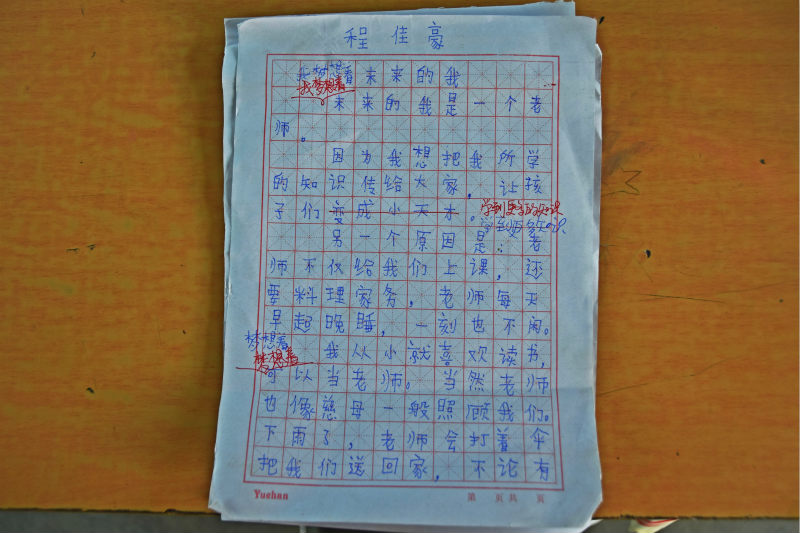 程佳豪
我梦想着未来的我
我梦想着
未来的我是一个老
师。
因为我想把我所学
的知识传给大家，让孩
子们变成小天才。学到更多的知识
学到更多知识
另一个原因是：老
师不仅给我们上课，还
要料理家务，老师每天
早起晚睡，一刻也不闲。
梦想着
我从小就喜欢读书，
梦想着
可以当老师。当然老师
也像慈母一般照顾我们。
下雨了，老师会打着伞
把我们送回家，不论有
Yushan
第 页共 页